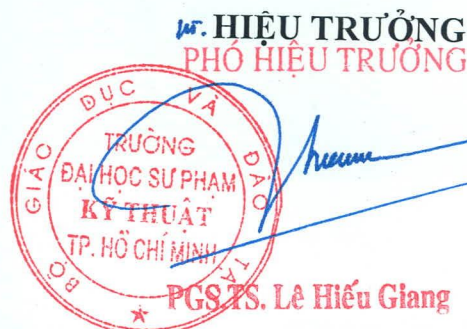 KT. HIỆU TRƯỞNG
PHÓ HIỆU TRƯỞNG
BỘ GIÁO DỤC VÀ ĐÀO TẠO
TRƯỜNG
ĐẠI HỌC SƯ PHẠM
KỸ THUẬT
TP. HỒ CHÍ MINH
PGS.TS. Lê Hiếu Giang